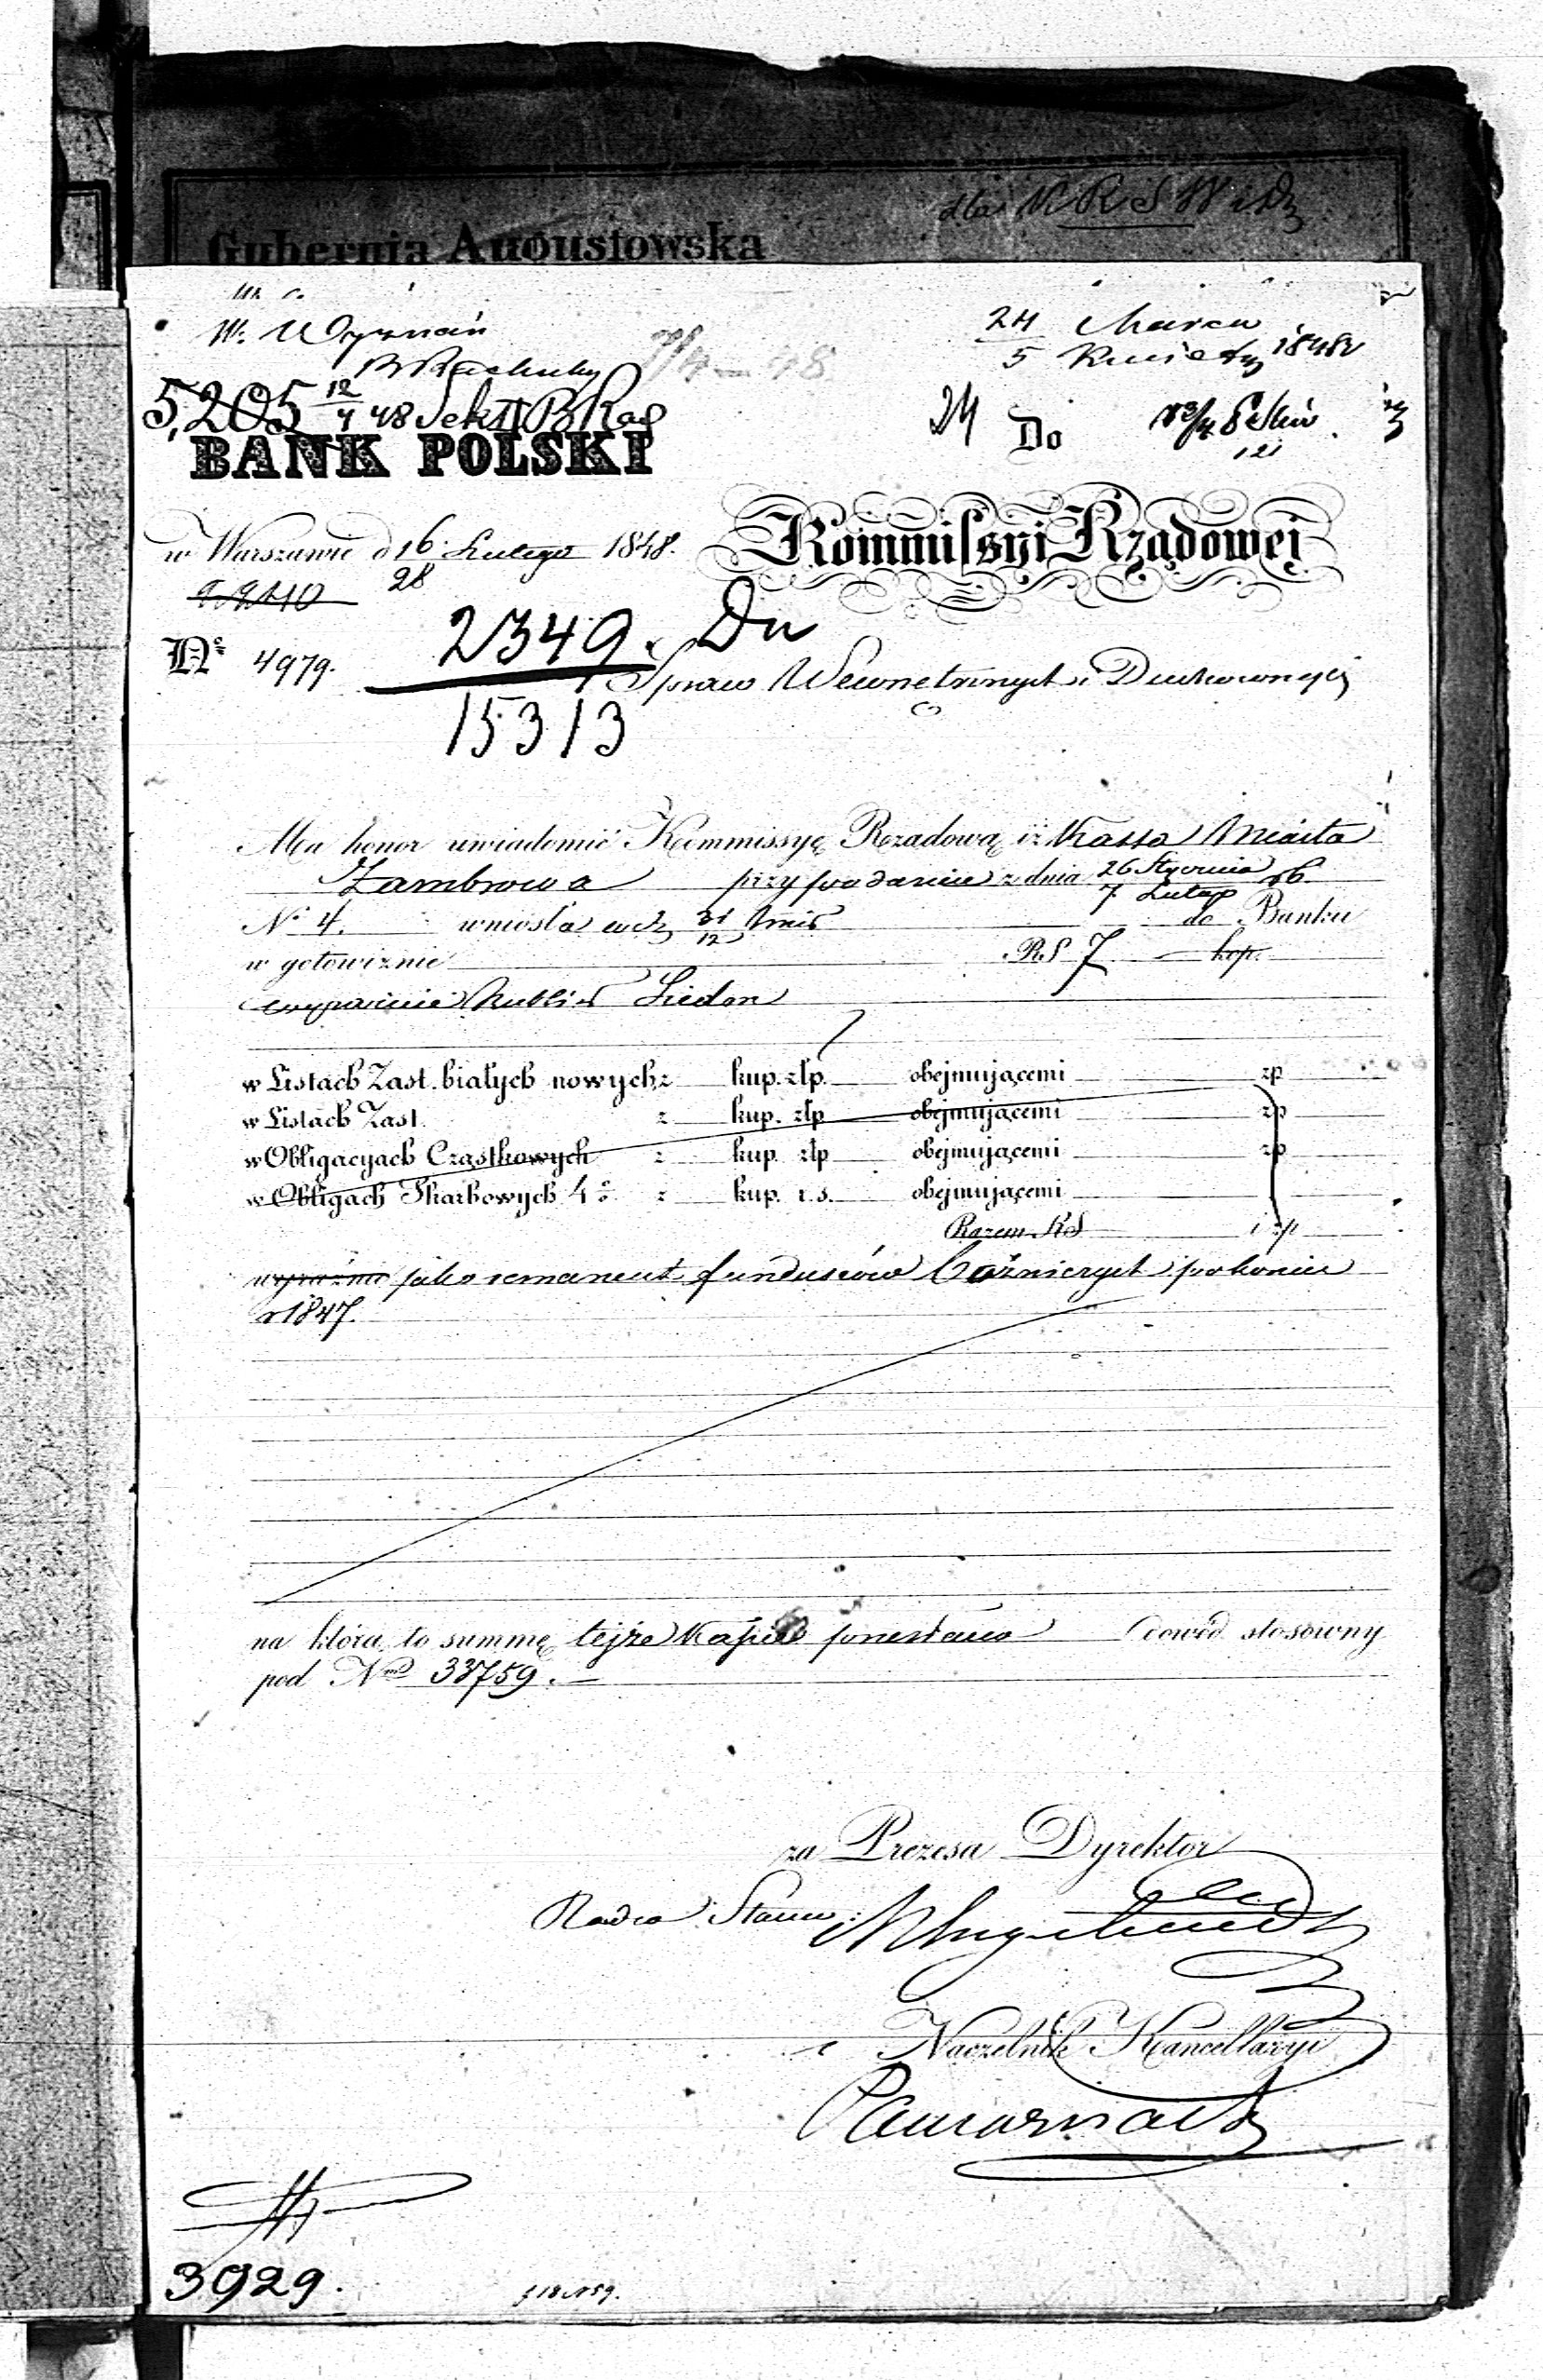 dla K R S W i D
Gubernia Augustowska
W. Wyznań
24 Marca
5 Kwietn 1848
5,205 12/4 48 Sekt B Ra
BANK POLSKI
24 Do
Kommissyi Rządowej
w Warszawie d 16 Lutego 1848.
28
2349. Du
No 4979.
Spraw Wewnetrznych i Duchownych
15313
Ma honor uwiadomić Kommissyę Rządową iż Kassa Miasta
Zambrowa przy podaniu z dnia 26 Stycznia rb.
7 Lutego
No 4. wniosła 31 do Banku
12
w gotowiznie RS 7 kop.
wyraznie Rubli sr Siedm
w Listach Zast. białych nowych z kup. złp. obejmującemi zp
w Listach Zast. z kup. złp obejmującemi zp
w Obligacyach Cząstkowych z kup. złp obejmującemi zp
w Obligach Skarbowych 4% z kup. r. s. obejmującemi
Razem RS i zp
wyraźnie jako remanent funduszów bożniczych po koniec
r 1847.
na którą to summę tejże Kassie przesłano dowód stosowny
pod Nm 33759.
za Prezesa Dyrektor
Radca Stanu
Naczelnik Kancellaryi
3929.